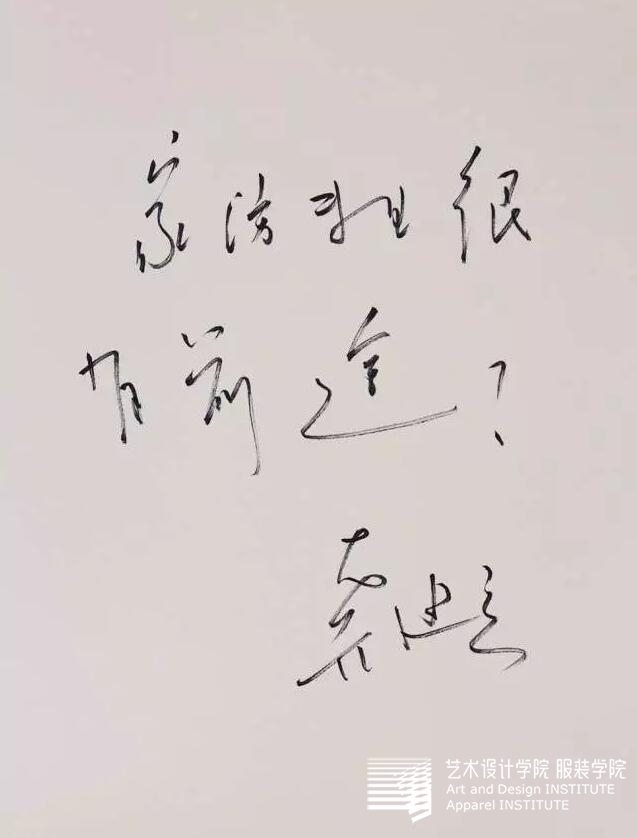 家纺班很
有前途!
艺术设计学院 服装学院
Art and Design INSTITUTE
Apparel INSTITUTE